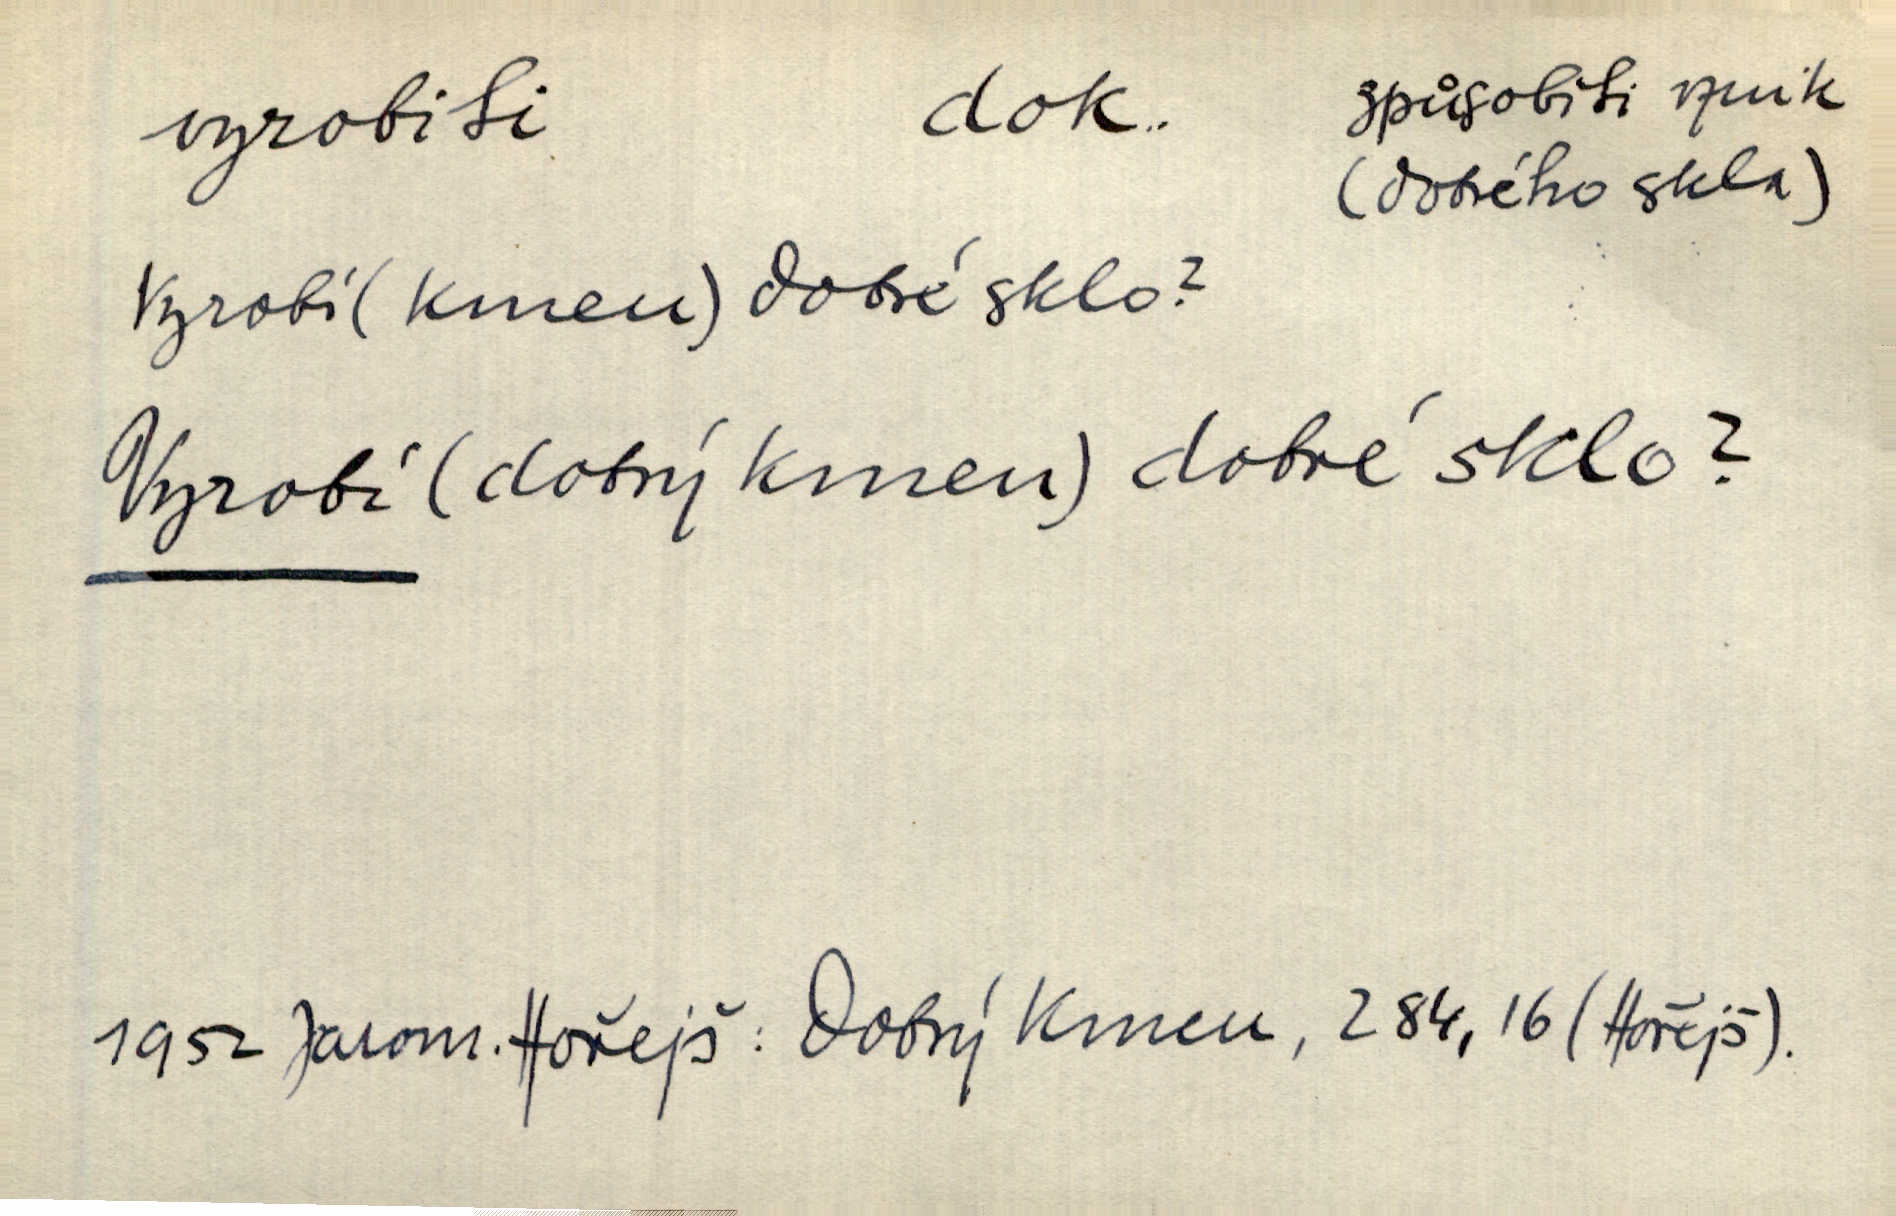 vyrobiti dok. způsobiti vznik
(dobrého skla)
Vyrobí (kmen) dobré sklo?
Vyrobí (dobrý kmen) dobré sklo?
1952 Jarom. Hořejš: Dobrý kmen, 284, 16 (Hořejš).